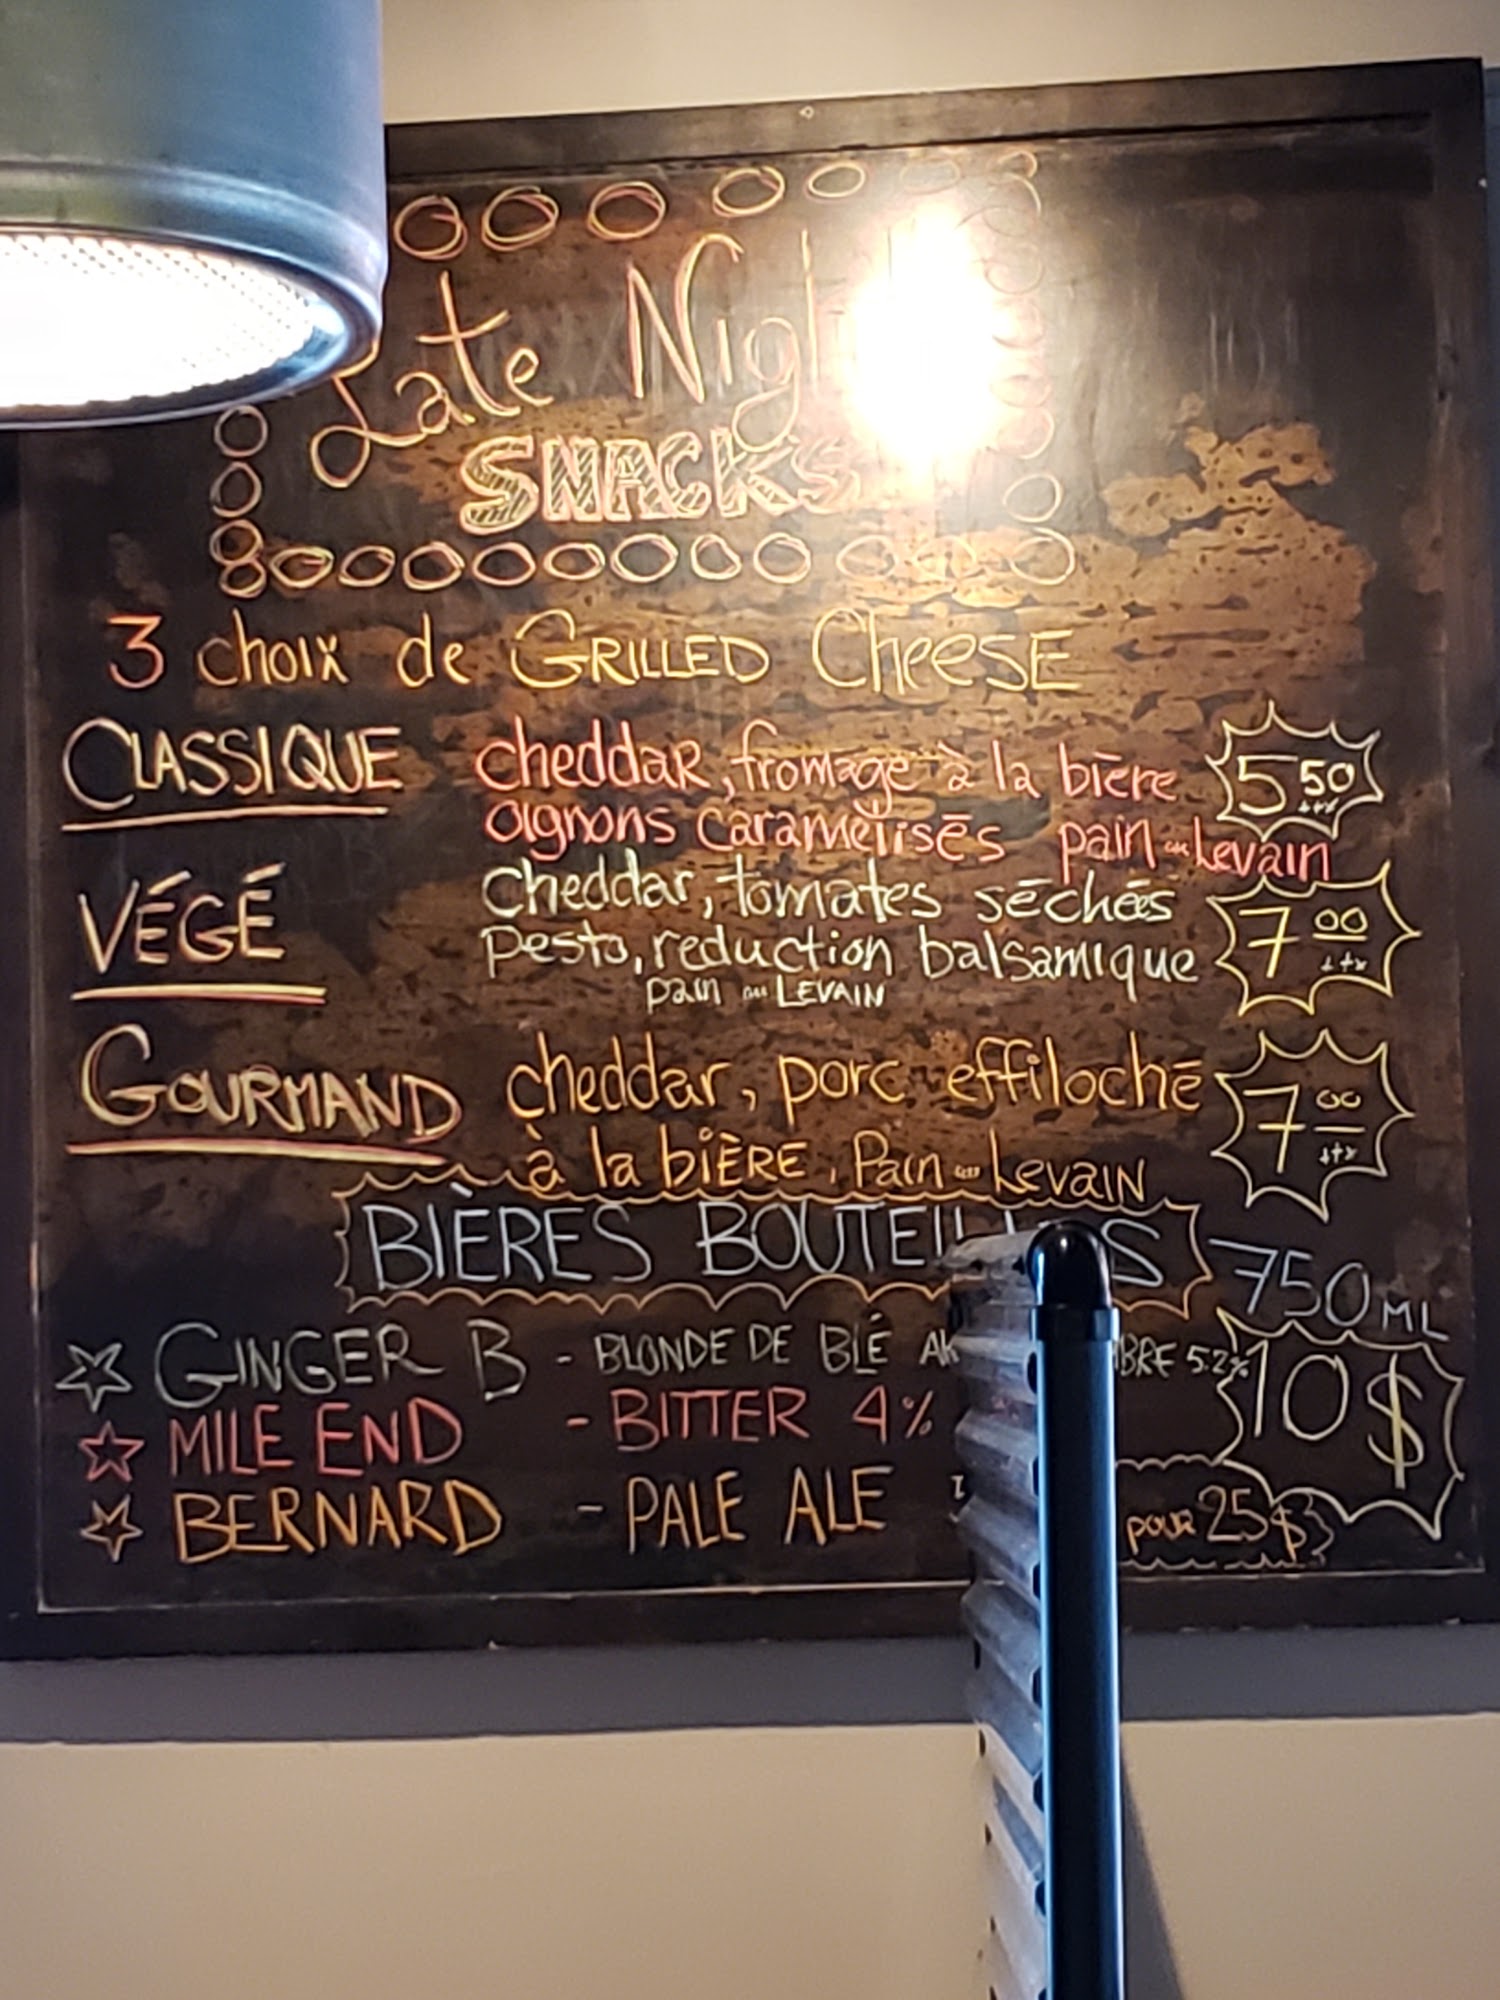 Late Night
SNACKS
3 choix de GRILLED CHEESE
CLASSIQUE cheddar, fromage à la bière 5 50 +++
oignons caramélisés pain au Levain
VÉGÉ cheddar, tomates séchées 7 00 +++
pesto, reduction balsamique
pain au LEVAIN
GOURMAND cheddar, porc effiloché 7 00 +++
à la bière, Pain au Levain
BIÈRES BOUTEILLES 750 ML
GINGER B - BLONDE DE BLÉ 5.2% 10$
MILE END - BITTER 4%
BERNARD - PALE ALE pour 25$